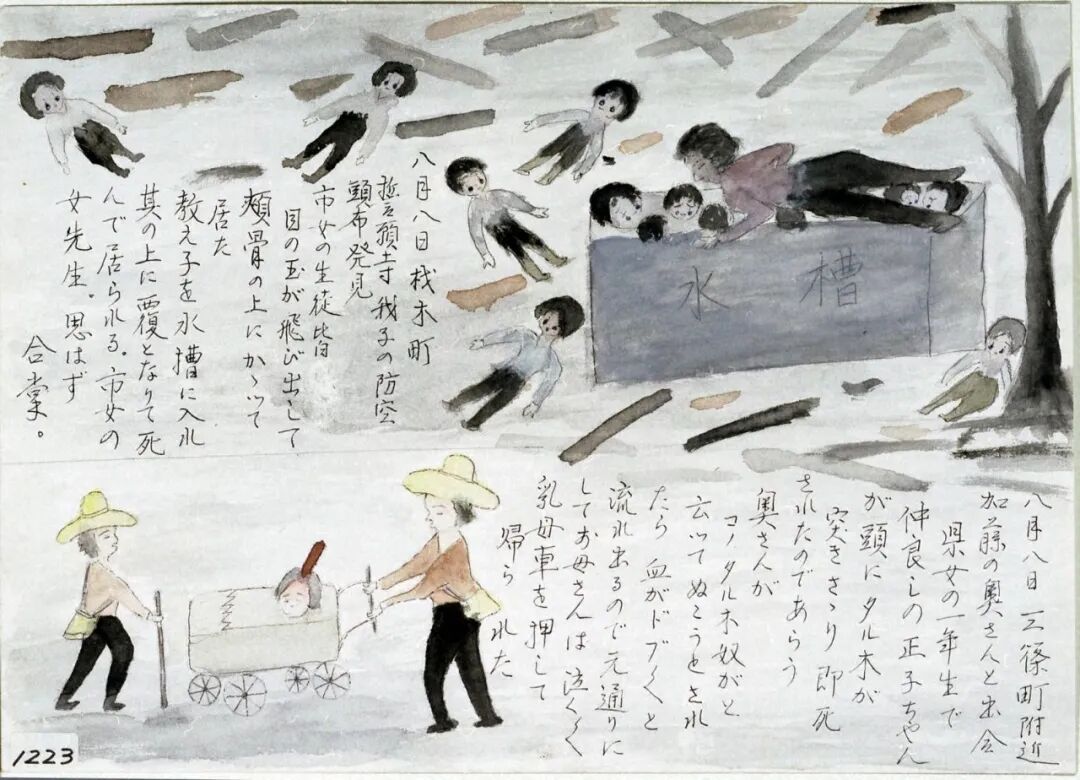 八月八日材木町
誓願寺我子の防空
頭布発見
市女の生徒皆
目の玉が飛び出して
頬骨の上にかゝって
居た
教え子を水槽に入れ
其の上に覆となりて死
んで居られる。市女の
女先生。思はず
合掌。
水槽
八月八日 三篠町附近
加藤の奥さんと出会
県女の一年生で
仲良しの正子ちゃん
が頭にタル木が
突きさゝり即死
されたのであらう
奥さんが
コノタル木奴がと
云ってぬこうとされ
たら 血がドブ〱と
流れ出るので元通りに
してお母さんは泣く〱
乳母車を押して
帰られた
1223